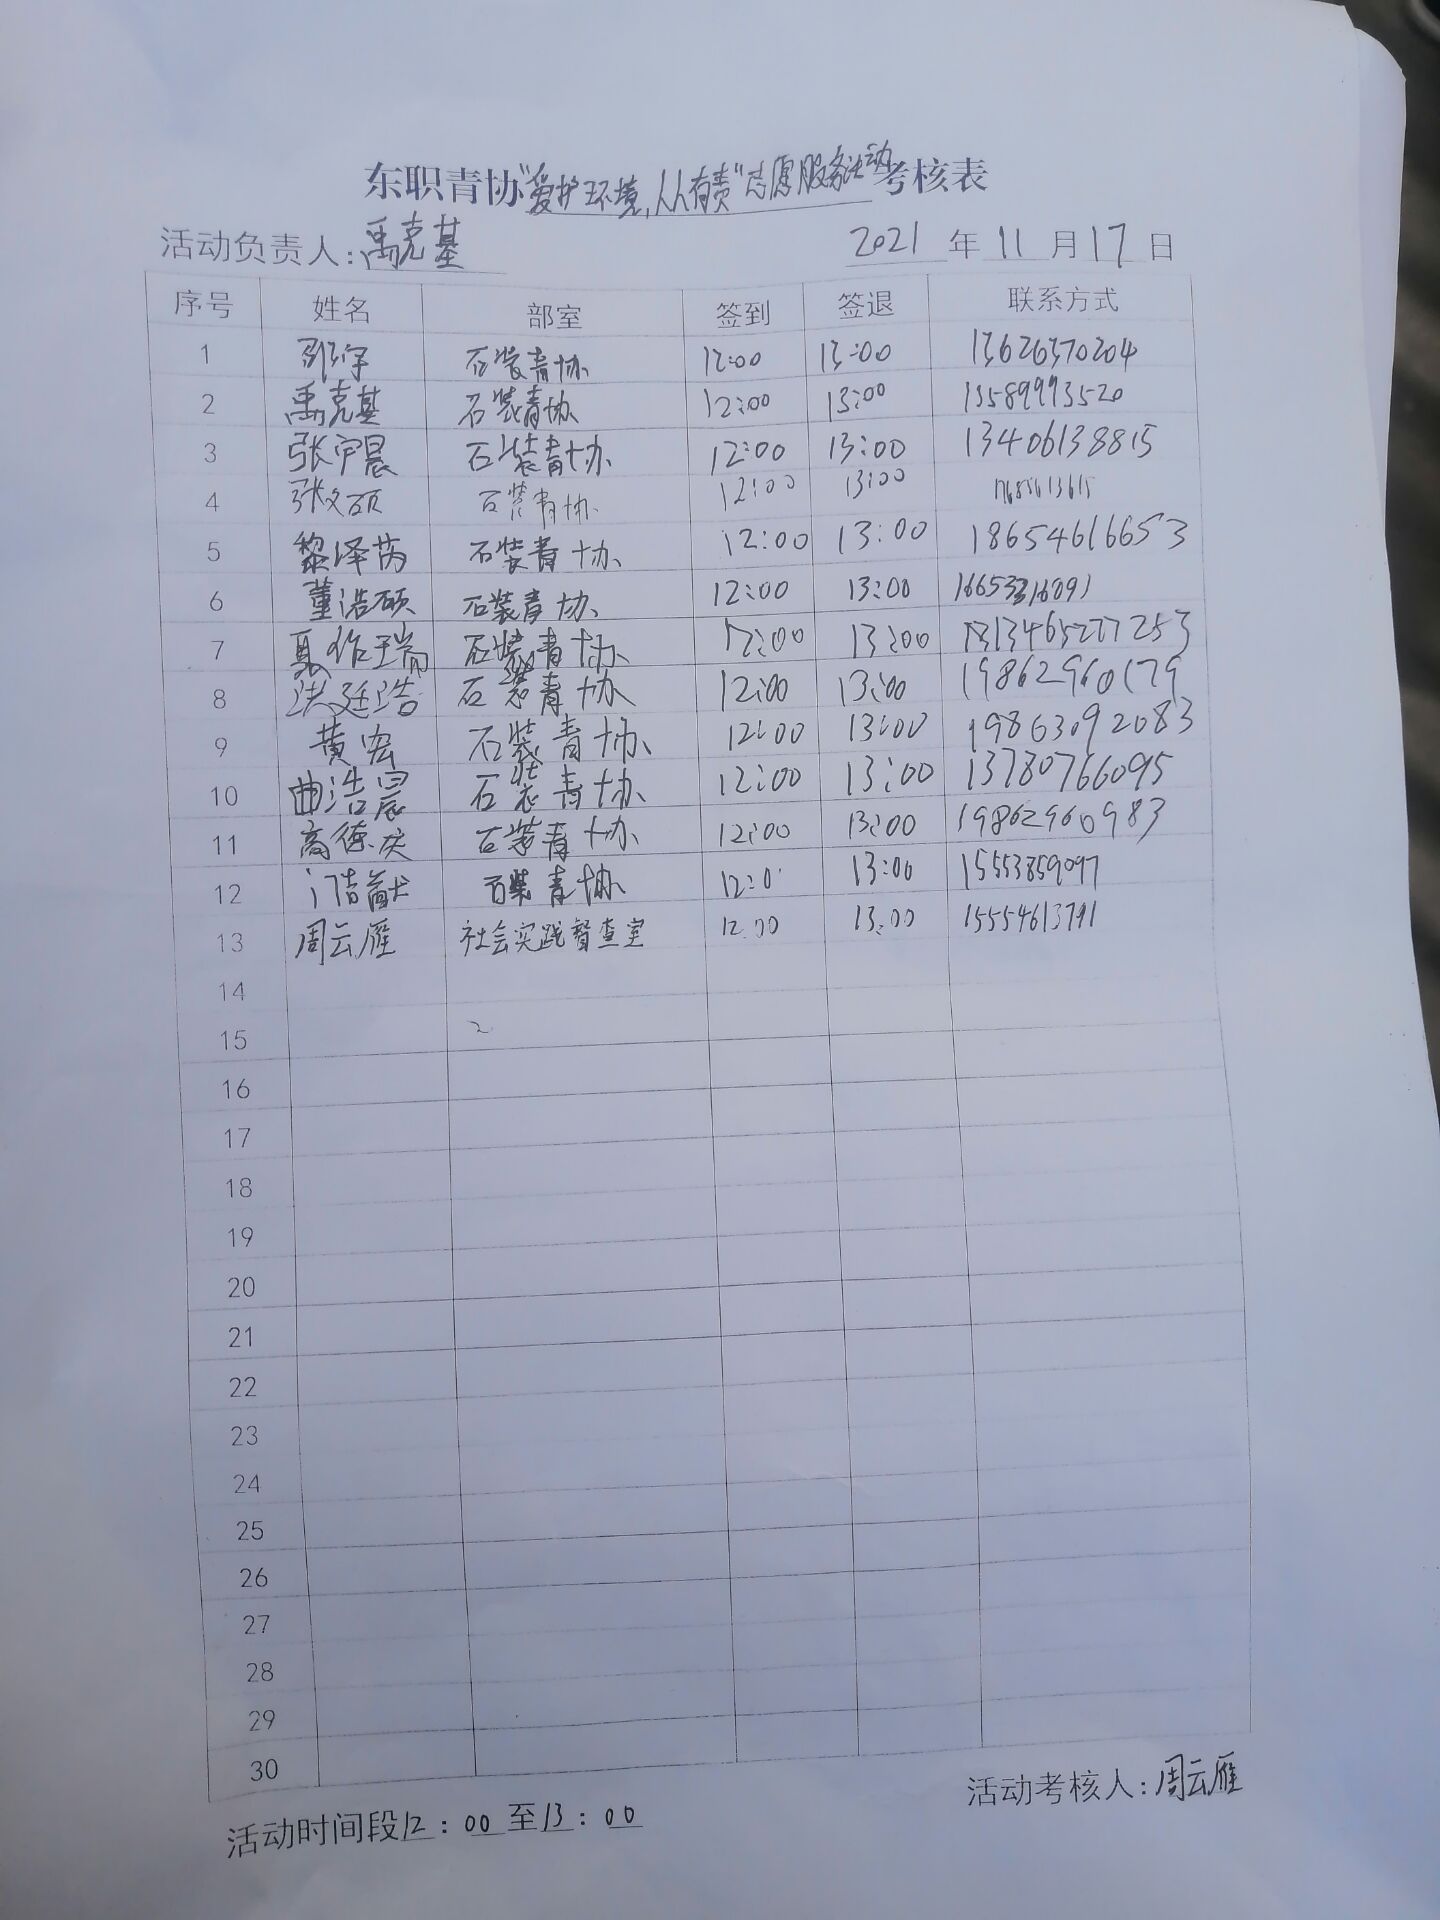 东职青协“爱护环境,人人有责”志愿服务活动考核表
活动负责人:禹克基 2021 年 11 月 17 日
序号 姓名 部室 签到 签退 联系方式
1 石装青协 12:00 13:00 13626370204
2 禹克基 石装青协 12:00 13:00 13589993520
3 张宇晨 石装青协 12:00 13:00 13406138815
4 张文硕 石装青协 12:00 13:00
5 黎泽芮 石装青协 12:00 13:00 18654616653
6 董浩硕 石装青协 12:00 13:00
7 石装青协 12:00 13:00
8 洪廷浩 石装青协 12:00 13:00 19862960179
9 黄宏 石装青协 12:00 13:00 19863092083
10 曲浩宸 石装青协 12:00 13:00 13780766095
11 高德庆 石装青协 12:00 13:00 19862960983
12 石装青协 12:0 13:00 15553859097
13 周云雁 社会实践督查室 12:00 13:00 15554613791
14
15
16
17
18
19
20
21
22
23
24
25
26
27
28
29
30
活动考核人:周云雁
活动时间段12:00至13:00